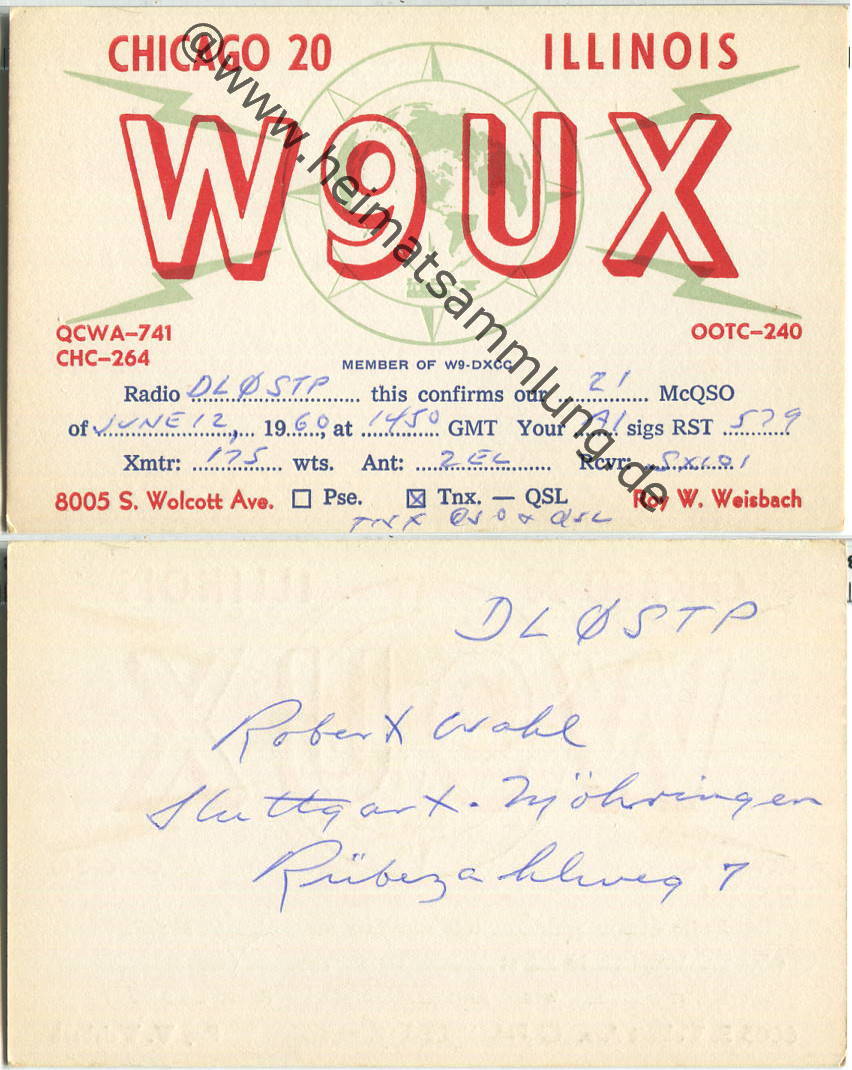 CHICAGO 20 ILLINOIS
W9UX
QCWA-741 OOTC-240
CHC-264
MEMBER OF W9-DXCC
Radio DLØSTP this confirms our 21 McQSO
of JUNE 12, 1960, at 1450 GMT Your A1 sigs RST 579
Xmtr: 175 wts. Ant: 2EL Rcvr: SX101
8005 S. Wolcott Ave. Pse. Tnx. — QSL Roy W. Weisbach
TNX QSO & QSL
@www.heimatsammlung.de
DLØSTP
Robert Wahl
Stuttgart-Möhringen
Rübezahlweg 7